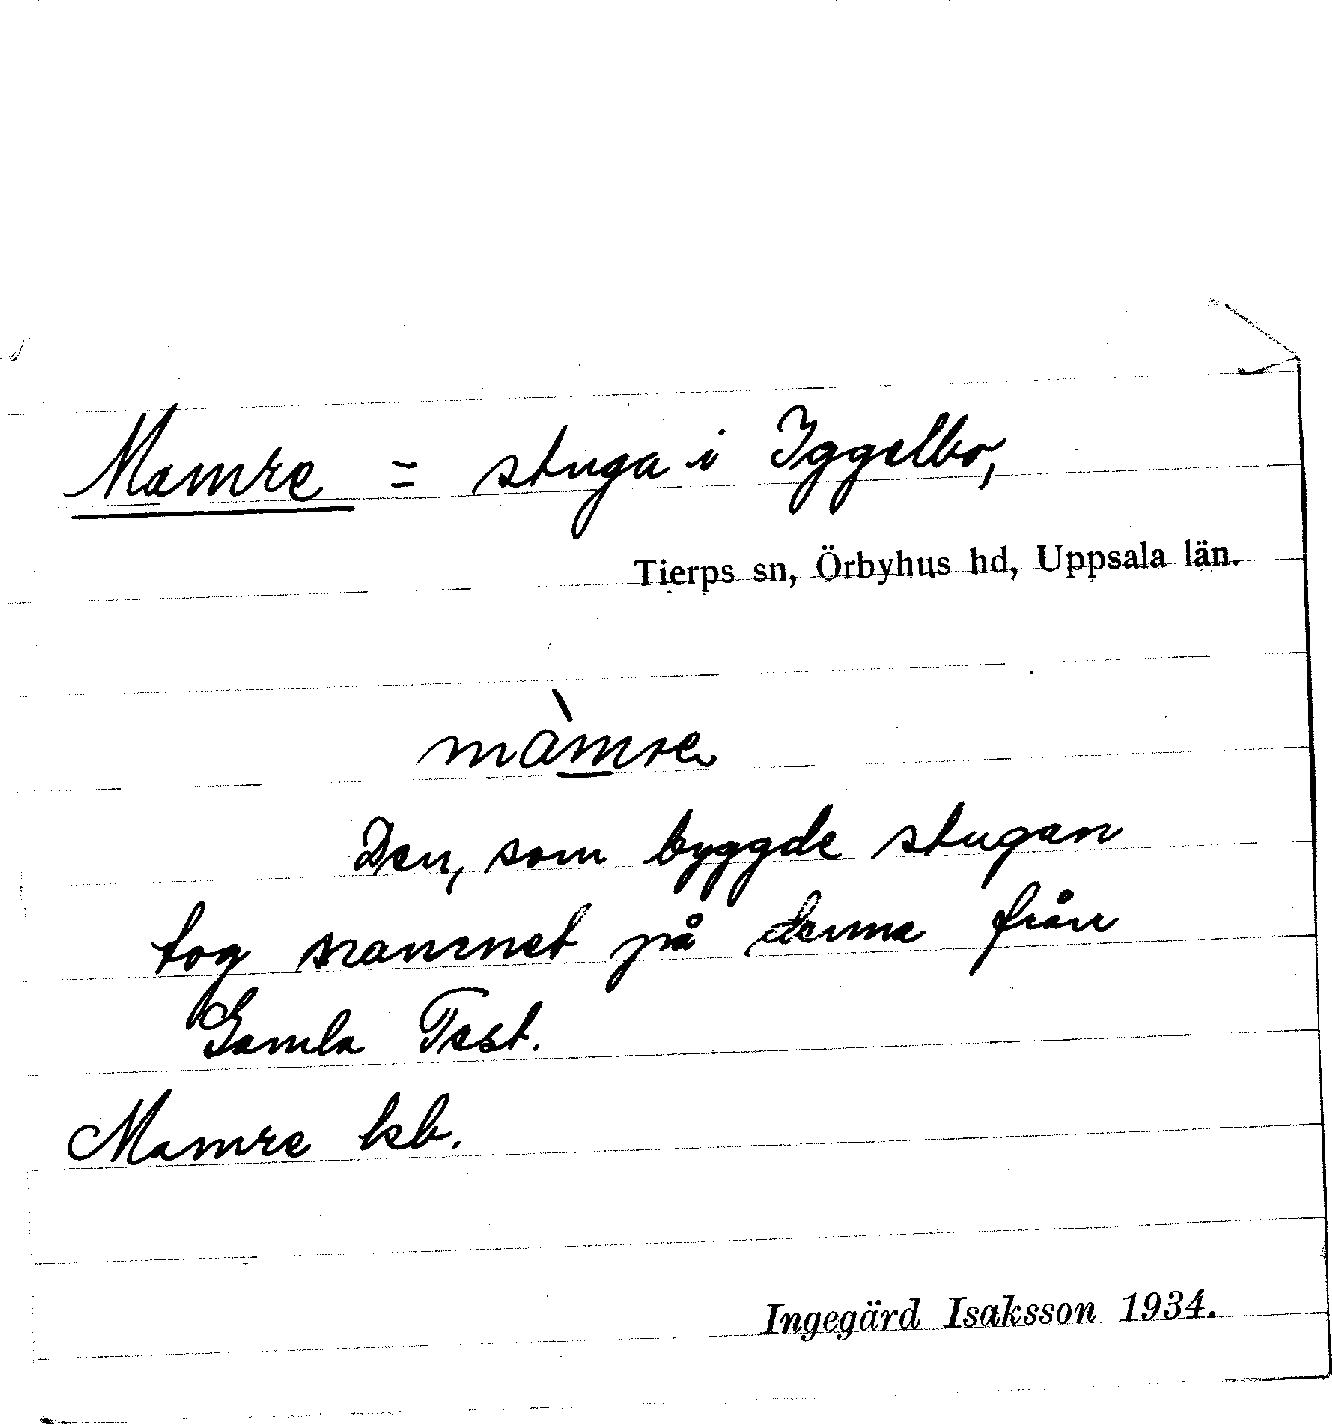 Mamre = stuga i Iggelbo,
Tierps sn, Örbyhus hd, Uppsala län.
màmre
Den, som byggde stugan
tog namnet på denna från
Gamla Test.
Mamre kb.
Ingegärd Isaksson 1934.